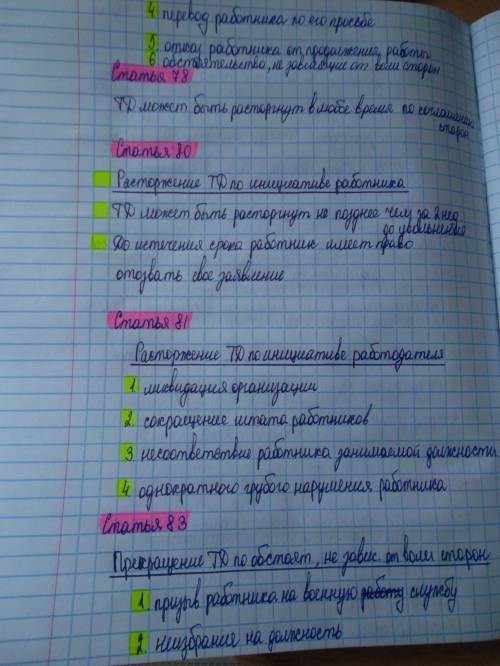 4 перевод работника по его просьбе
5 отказ работника от продолжения работы
6 обстоятельства, не зависящие от воли сторон
Статья 78
ТД может быть расторгнут в любое время по соглашению
сторон
Статья 80
Расторжение ТД по инициативе работника
ТД может быть расторгнут не позднее чем за 2 нед.
до увольнения
До истечения срока работник имеет право
отозвать свое заявление
Статья 81
Расторжение ТД по инициативе работодателя
1. ликвидация организации
2. сокращение штата работников
3. несоответствие работника занимаемой должности
4. однократного грубого нарушения работника
Статья 83
Прекращение ТД по обстоят, не завис. от воли сторон
1. призыв работника на военную работу службу
2. неизбрание на должность